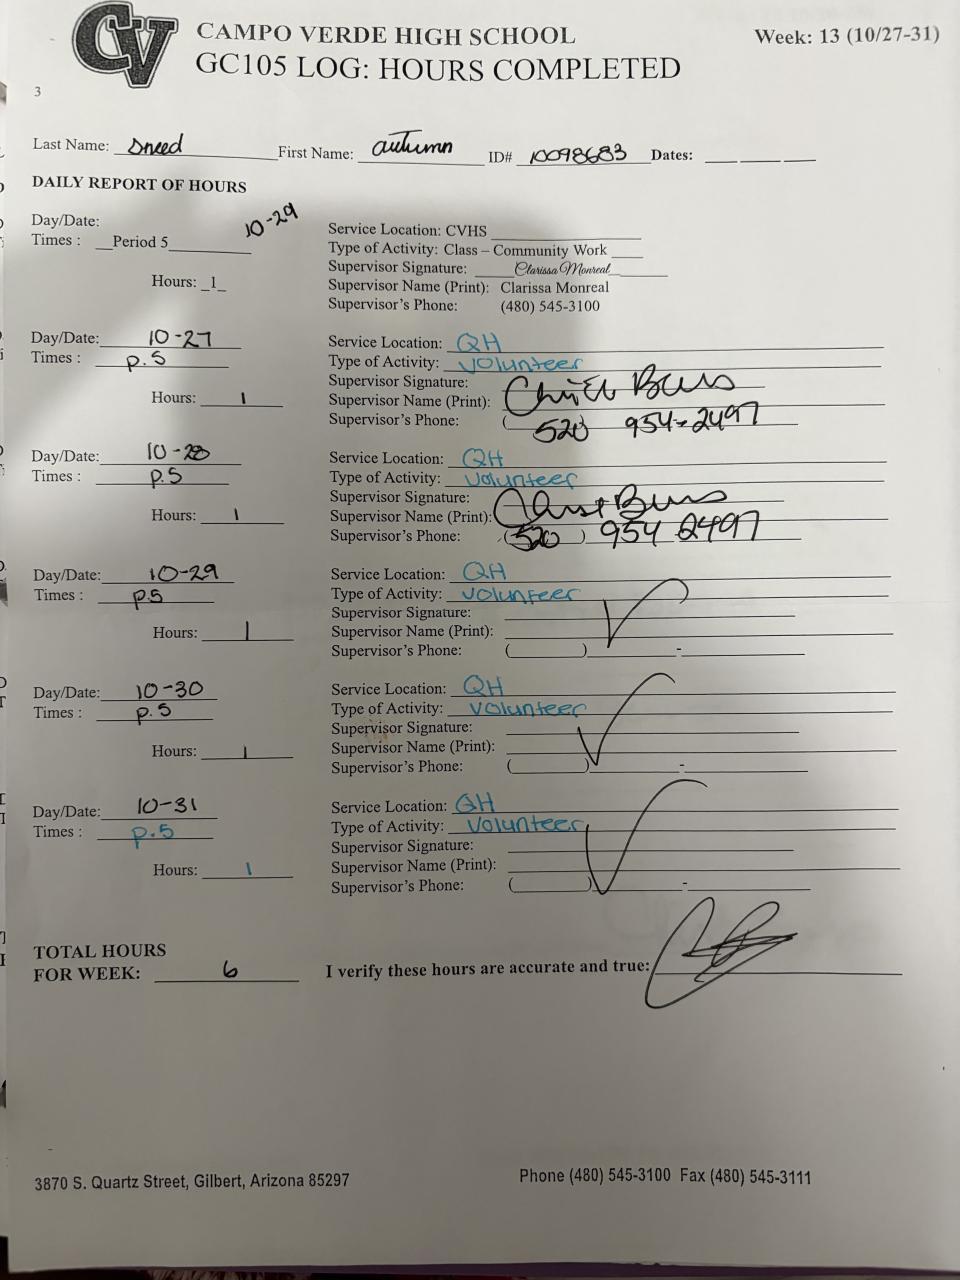 CV
CAMPO VERDE HIGH SCHOOL
Week: 13 (10/27-31)
GC105 LOG: HOURS COMPLETED
3
Last Name: Sneed First Name: autumn ID# 10098683 Dates:
DAILY REPORT OF HOURS
Day/Date: 10-29
Times : Period 5
Hours: 1
Service Location: CVHS
Type of Activity: Class – Community Work
Supervisor Signature: Clarissa Monreal
Supervisor Name (Print): Clarissa Monreal
Supervisor's Phone: (480) 545-3100
Day/Date: 10-27
Times : p.5
Hours: 1
Service Location: QH
Type of Activity: Volunteer
Supervisor Signature:
Supervisor Name (Print):
Supervisor's Phone: ( 520 954-2497
Day/Date: 10-28
Times : p.5
Hours: 1
Service Location: QH
Type of Activity: Volunteer
Supervisor Signature:
Supervisor Name (Print):
Supervisor's Phone: (520) 954 2497
Day/Date: 10-29
Times : p.5
Hours: 1
Service Location: QH
Type of Activity: Volunteer
Supervisor Signature:
Supervisor Name (Print):
Supervisor's Phone: ( ) -
Day/Date: 10-30
Times : p.5
Hours: 1
Service Location: QH
Type of Activity: Volunteer
Supervisor Signature:
Supervisor Name (Print):
Supervisor's Phone: ( ) -
Day/Date: 10-31
Times : p.5
Hours: 1
Service Location: QH
Type of Activity: Volunteer
Supervisor Signature:
Supervisor Name (Print):
Supervisor's Phone: ( ) -
TOTAL HOURS
FOR WEEK: 6
I verify these hours are accurate and true:
3870 S. Quartz Street, Gilbert, Arizona 85297
Phone (480) 545-3100 Fax (480) 545-3111